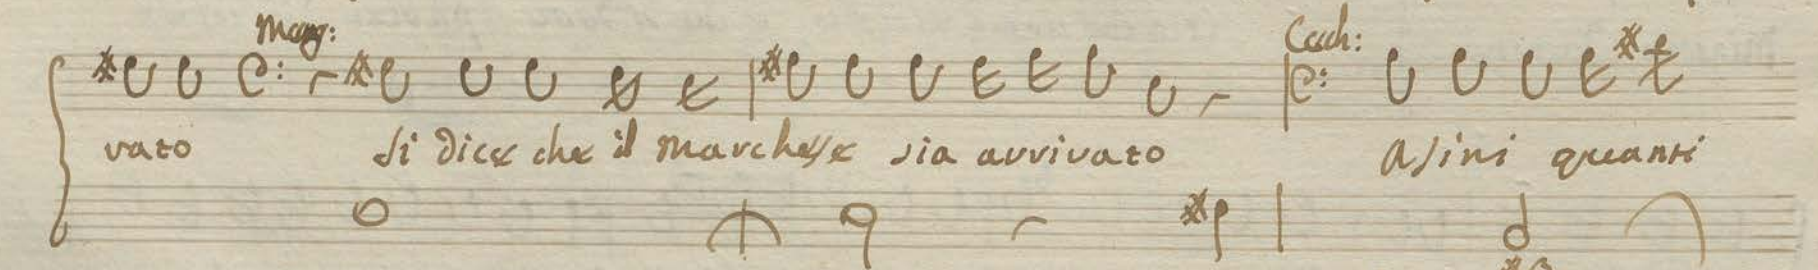 Marg: Cech:
vato si dice che il Marchese sia arrivato Asini quanti